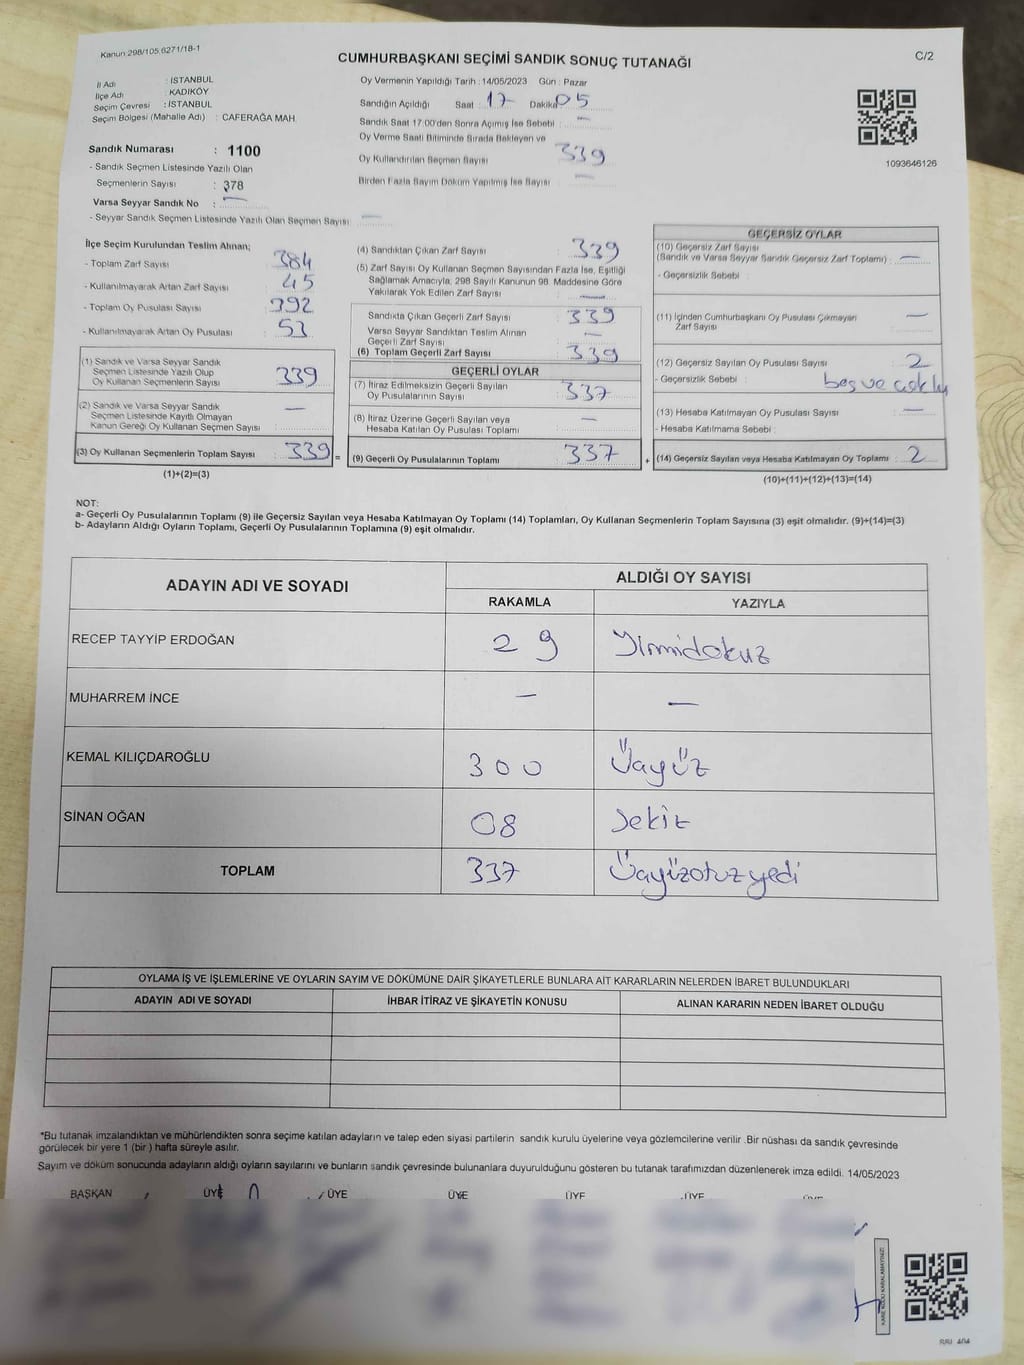 Kanun 298/105 6271/18-1
CUMHURBAŞKANI SEÇİMİ SANDIK SONUÇ TUTANAĞI
C/2
İl Adı : İSTANBUL
İlçe Adı : KADIKÖY
Seçim Çevresi : İSTANBUL
Seçim Bölgesi (Mahalle Adı) : CAFERAĞA MAH.
Sandık Numarası : 1100
- Sandık Seçmen Listesinde Yazılı Olan
Seçmenlerin Sayısı : 378
Varsa Seyyar Sandık No : —
- Seyyar Sandık Seçmen Listesinde Yazılı Olan Seçmen Sayısı: —
Oy Vermenin Yapıldığı Tarih : 14/05/2023 Gün : Pazar
Sandığın Açıldığı Saat : 17 Dakika 05
Sandık Saat 17:00'den Sonra Açımış İse Sebebi : —
Oy Verme Saati Bitiminde Sırada Bekleyen ve
Oy Kullandırılan Seçmen Sayısı 339
Birden Fazla Sayım Döküm Yapılmış İse Sayısı —
1093646126
İlçe Seçim Kurulundan Teslim Alınan;
- Toplam Zarf Sayısı : 384
- Kullanılmayarak Artan Zarf Sayısı : 45
- Toplam Oy Pusulası Sayısı : 392
- Kullanılmayarak Artan Oy Pusulası : 53
(1) Sandık ve Varsa Seyyar Sandık
Seçmen Listesinde Yazılı Olup
Oy Kullanan Seçmenlerin Sayısı : 339
(2) Sandık ve Varsa Seyyar Sandık
Seçmen Listesinde Kayıtlı Olmayan
Kanun Gereği Oy Kullanan Seçmen Sayısı : —
(3) Oy Kullanan Seçmenlerin Toplam Sayısı : 339 =
(1)+(2)=(3)
(4) Sandıktan Çıkan Zarf Sayısı : 339
(5) Zarf Sayısı Oy Kullanan Seçmen Sayısından Fazla İse, Eşitliği
Sağlamak Amacıyla, 298 Sayılı Kanunun 98. Maddesine Göre
Yakılarak Yok Edilen Zarf Sayısı : —
Sandıkta Çıkan Geçerli Zarf Sayısı : 339
Varsa Seyyar Sandıktan Teslim Alınan
Geçerli Zarf Sayısı : —
(6) Toplam Geçerli Zarf Sayısı : 339
GEÇERLİ OYLAR
(7) İtiraz Edilmeksizin Geçerli Sayılan
Oy Pusulalarının Sayısı : 337
(8) İtiraz Üzerine Geçerli Sayılan veya
Hesaba Katılan Oy Pusulası Toplamı : —
(9) Geçerli Oy Pusulalarının Toplamı : 337 +
GEÇERSİZ OYLAR
(10) Geçersiz Zarf Sayısı
(Sandık ve Varsa Seyyar Sandık Geçersiz Zarf Toplamı) : —
- Geçersizlik Sebebi :
(11) İçinden Cumhurbaşkanı Oy Pusulası Çıkmayan
Zarf Sayısı : —
(12) Geçersiz Sayılan Oy Pusulası Sayısı : 2
- Geçersizlik Sebebi : boş ve
(13) Hesaba Katılmayan Oy Pusulası Sayısı : —
- Hesaba Katılmama Sebebi :
(14) Geçersiz Sayılan veya Hesaba Katılmayan Oy Toplamı : 2
(10)+(11)+(12)+(13)=(14)
NOT:
a- Geçerli Oy Pusulalarının Toplamı (9) ile Geçersiz Sayılan veya Hesaba Katılmayan Oy Toplamı (14) Toplamları, Oy Kullanan Seçmenlerin Toplam Sayısına (3) eşit olmalıdır. (9)+(14)=(3)
b- Adayların Aldığı Oyların Toplamı, Geçerli Oy Pusulalarının Toplamına (9) eşit olmalıdır.
ADAYIN ADI VE SOYADI
ALDIĞI OY SAYISI
RAKAMLA YAZIYLA
RECEP TAYYİP ERDOĞAN 29 Yirmidokuz
MUHARREM İNCE — —
KEMAL KILIÇDAROĞLU 300 Üçyüz
SİNAN OĞAN 08 Sekiz
TOPLAM 337 Üçyüzotuzyedi
OYLAMA İŞ VE İŞLEMLERİNE VE OYLARIN SAYIM VE DÖKÜMÜNE DAİR ŞİKAYETLERLE BUNLARA AİT KARARLARIN NELERDEN İBARET BULUNDUKLARI
ADAYIN ADI VE SOYADI İHBAR İTİRAZ VE ŞİKAYETİN KONUSU ALINAN KARARIN NEDEN İBARET OLDUĞU
*Bu tutanak imzalandıktan ve mühürlendikten sonra seçime katılan adayların ve talep eden siyasi partilerin sandık kurulu üyelerine veya gözlemcilerine verilir .Bir nüshası da sandık çevresinde
görülecek bir yere 1 (bir ) hafta süreyle asılır.
Sayım ve döküm sonucunda adayların aldığı oyların sayılarını ve bunların sandık çevresinde bulunanlara duyurulduğunu gösteren bu tutanak tarafımızdan düzenlenerek imza edildi. 14/05/2023
BAŞKAN ÜYE ÜYE ÜYE ÜYE ÜYE ÜYE
KARE KODU KARALAMAYINIZ!